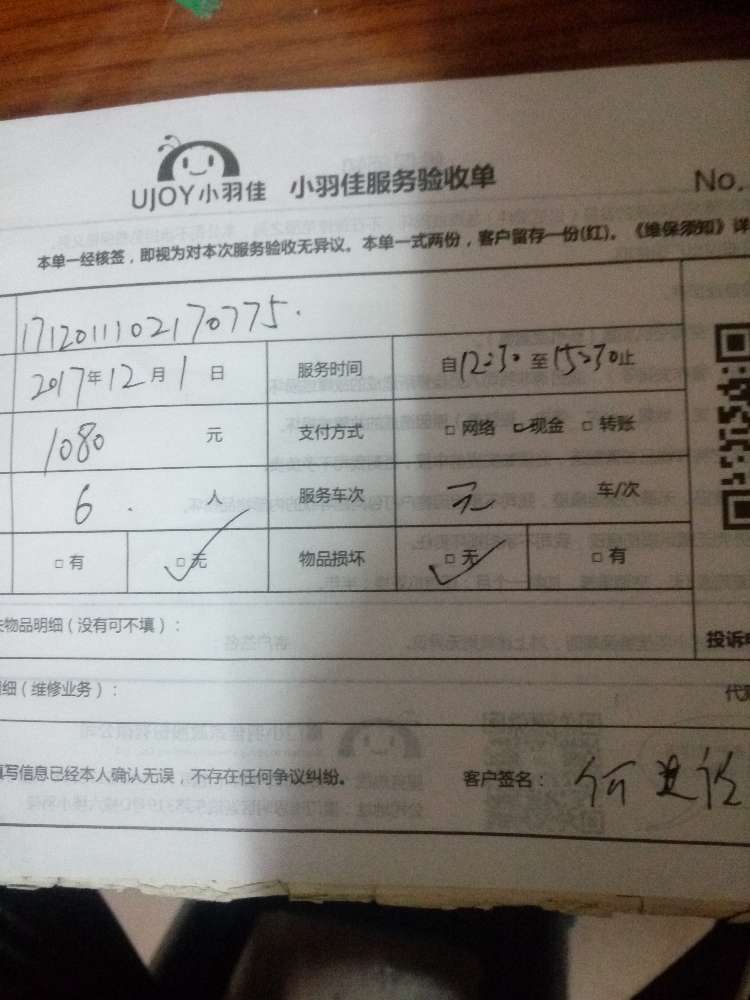 UJOY小羽佳 小羽佳服务验收单
No.
本单一经核签，即视为对本次服务验收无异议。本单一式两份，客户留存一份(红)。《维保须知》详
1712011102170775.
2017年12月1日 服务时间 自12:30至15:30止
1080元 支付方式 □网络 □现金 □转账
6.人 服务车次 无 车/次
□有 □无 物品损坏 □无 □有
物品明细（没有可不填）：
投诉
细（维修业务）：
填写信息已经本人确认无误，不存在任何争议纠纷。 客户签名：何